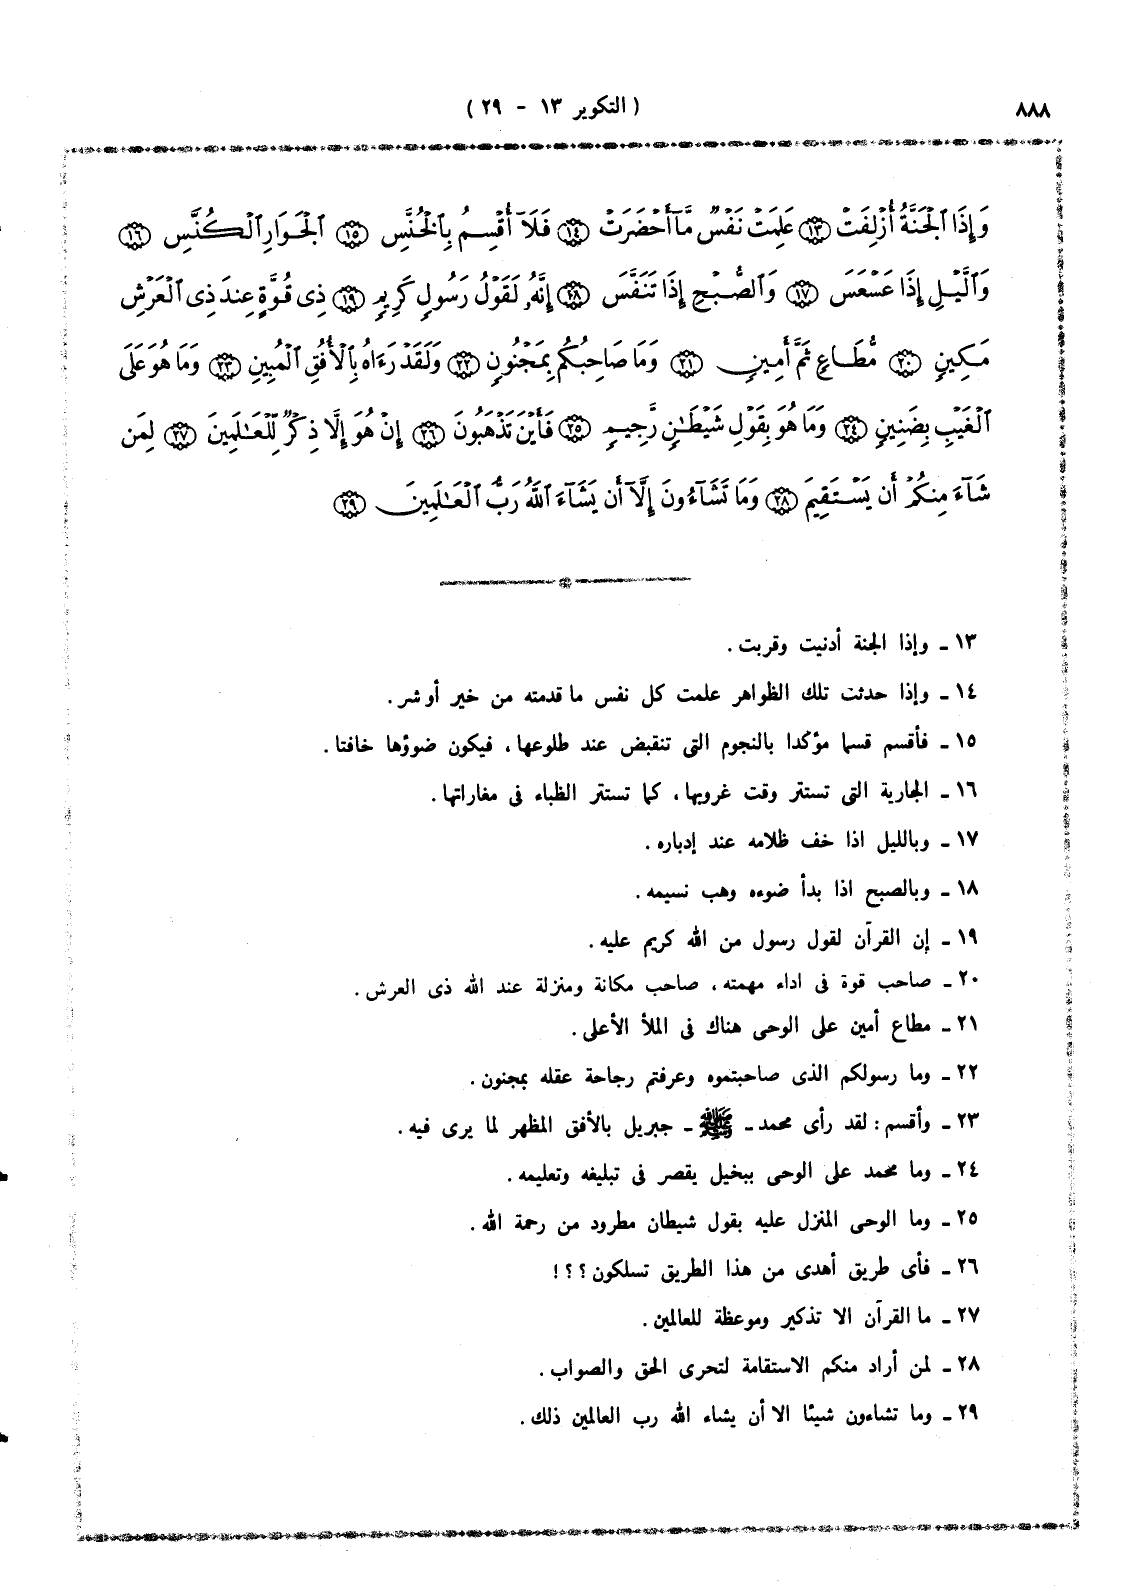 ٨٨٨
( التكوير ١٣ - ٢٩ )
وَإِذَا ٱلْجَنَّةُ أُزْلِفَتْ ١٣ عَلِمَتْ نَفْسٌ مَّآ أَحْضَرَتْ ١٤ فَلَآ أُقْسِمُ بِٱلْخُنَّسِ ١٥ ٱلْجَوَارِ ٱلْكُنَّسِ ١٦
وَٱلَّيْلِ إِذَا عَسْعَسَ ١٧ وَٱلصُّبْحِ إِذَا تَنَفَّسَ ١٨ إِنَّهُۥ لَقَوْلُ رَسُولٍ كَرِيمٍ ١٩ ذِى قُوَّةٍ عِندَ ذِى ٱلْعَرْشِ
مَكِينٍ ٢٠ مُّطَاعٍ ثَمَّ أَمِينٍ ٢١ وَمَا صَاحِبُكُم بِمَجْنُونٍ ٢٢ وَلَقَدْ رَءَاهُ بِٱلْأُفُقِ ٱلْمُبِينِ ٢٣ وَمَا هُوَ عَلَى
ٱلْغَيْبِ بِضَنِينٍ ٢٤ وَمَا هُوَ بِقَوْلِ شَيْطَـٰنٍ رَّجِيمٍ ٢٥ فَأَيْنَ تَذْهَبُونَ ٢٦ إِنْ هُوَ إِلَّا ذِكْرٌ لِّلْعَـٰلَمِينَ ٢٧ لِمَن
شَآءَ مِنكُمْ أَن يَسْتَقِيمَ ٢٨ وَمَا تَشَآءُونَ إِلَّآ أَن يَشَآءَ ٱللَّهُ رَبُّ ٱلْعَـٰلَمِينَ ٢٩
١٣ ـ وإذا الجنة أدنيت وقربت .
١٤ ـ وإذا حدثت تلك الظواهر علمت كل نفس ما قدمته من خير أو شر .
١٥ ـ فأقسم قسما مؤكدا بالنجوم التى تنقبض عند طلوعها ، فيكون ضوؤها خافتا .
١٦ ـ الجارية التى تستتر وقت غروبها ، كما تستتر الظباء فى مغاراتها .
١٧ ـ وبالليل اذا خف ظلامه عند إدباره .
١٨ ـ وبالصبح اذا بدأ ضوءه وهب نسيمه .
١٩ ـ إن القرآن لقول رسول من الله كريم عليه .
٢٠ ـ صاحب قوة فى اداء مهمته ، صاحب مكانة ومنزلة عند الله ذى العرش .
٢١ ـ مطاع أمين على الوحى هناك فى الملأ الأعلى .
٢٢ ـ وما رسولكم الذى صاحبتموه وعرفتم رجاحة عقله بمجنون .
٢٣ ـ وأقسم : لقد رأى محمد ـ ﷺ ـ جبريل بالأفق المظهر لما يرى فيه .
٢٤ ـ وما محمد على الوحى ببخيل يقصر فى تبليغه وتعليمه .
٢٥ ـ وما الوحى المنزل عليه بقول شيطان مطرود من رحمة الله .
٢٦ ـ فأى طريق أهدى من هذا الطريق تسلكون ؟ ؟ !
٢٧ ـ ما القرآن الا تذكير وموعظة للعالمين .
٢٨ ـ لمن أراد منكم الاستقامة لتحرى الحق والصواب .
٢٩ ـ وما تشاءون شيئا الا أن يشاء الله رب العالمين ذلك .